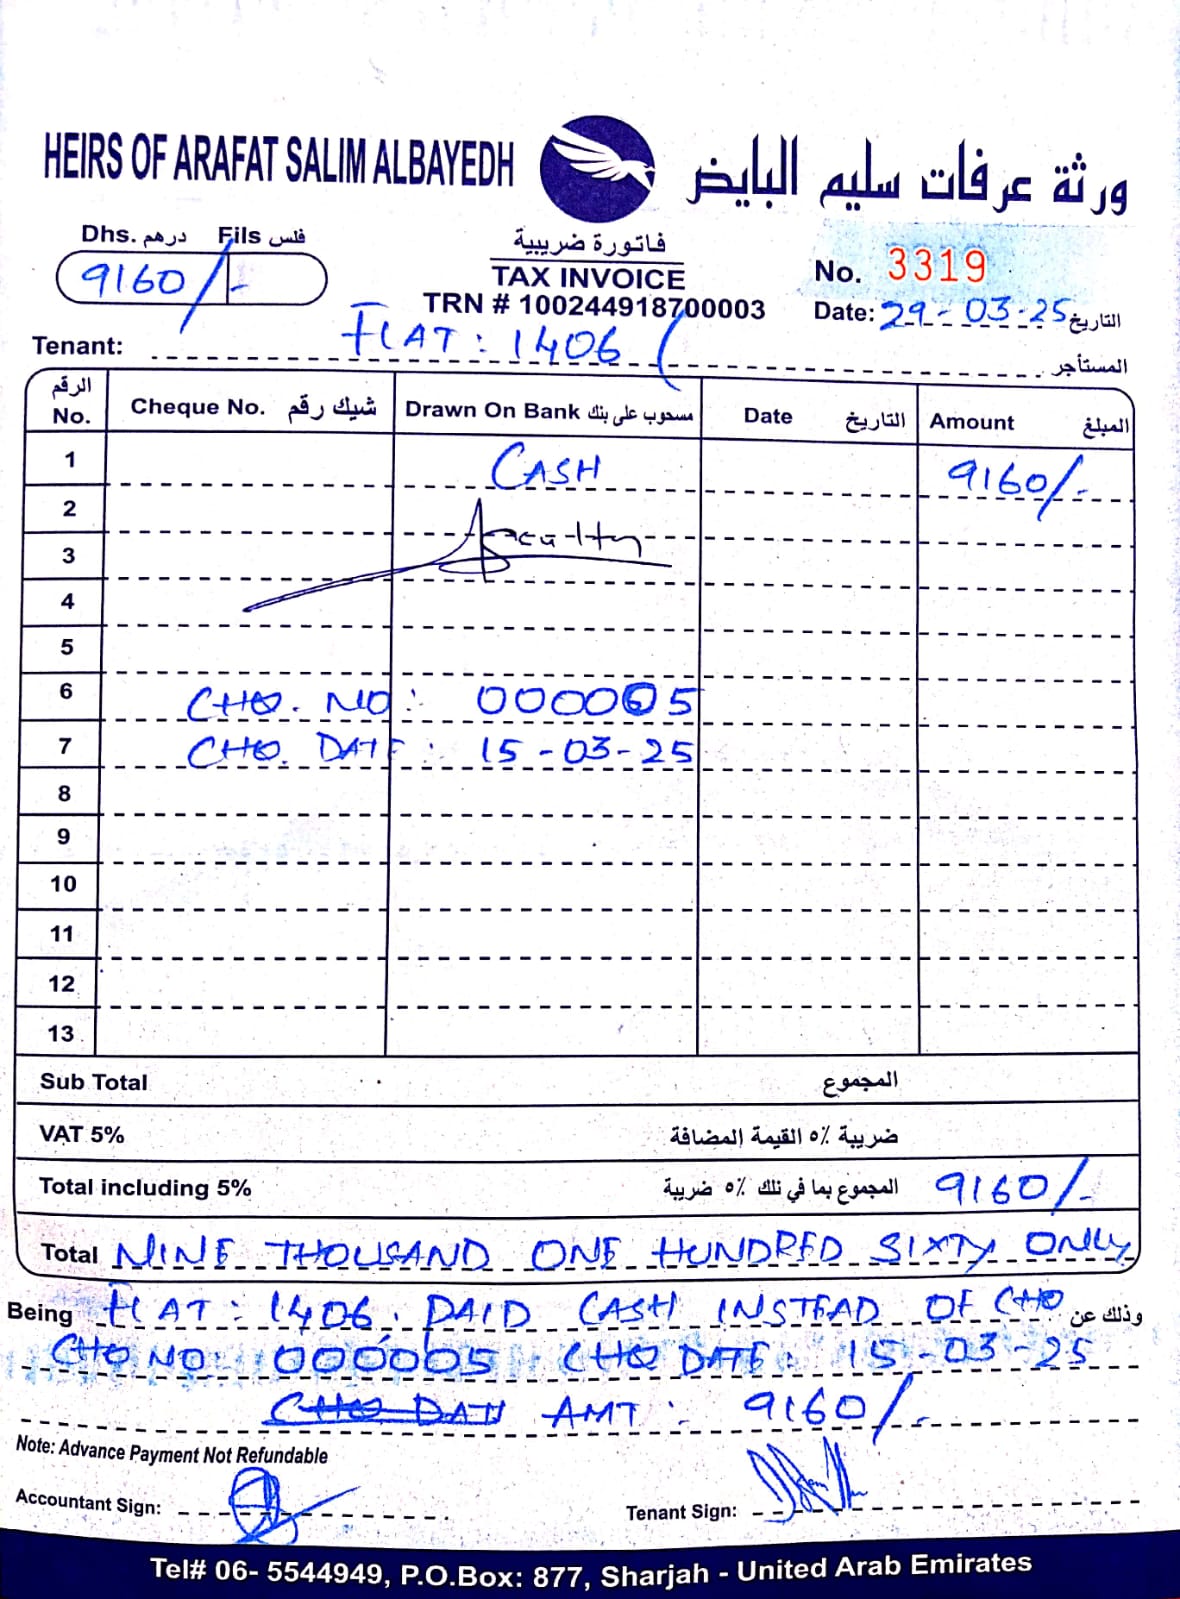 HEIRS OF ARAFAT SALIM ALBAYEDH ورثة عرفات سليم البايض
Dhs. درهم Fils فلس
9160/-
فاتورة ضريبية
TAX INVOICE
TRN # 100244918700003
No. 3319
Date: 29-03-25 التاريخ
Tenant: FLAT : 1406 المستأجر
الرقم No. Cheque No. شيك رقم Drawn On Bank مسحوب على بنك Date التاريخ Amount المبلغ
1 CASH 9160/-
2
3
4
5
6 CHQ. NO : 000005
7 CHQ. DATE : 15-03-25
8
9
10
11
12
13
Sub Total المجموع
VAT 5% ضريبة ٥٪ القيمة المضافة
Total including 5% المجموع بما في ذلك ٥٪ ضريبة 9160/-
Total NINE THOUSAND ONE HUNDRED SIXTY ONLY
Being FLAT : 1406. PAID CASH INSTEAD OF CHQ وذلك عن
CHQ NO: 000005 CHQ DATE : 15-03-25
CHQ DATE AMT : 9160/-
Note: Advance Payment Not Refundable
Accountant Sign:
Tenant Sign:
Tel# 06- 5544949, P.O.Box: 877, Sharjah - United Arab Emirates